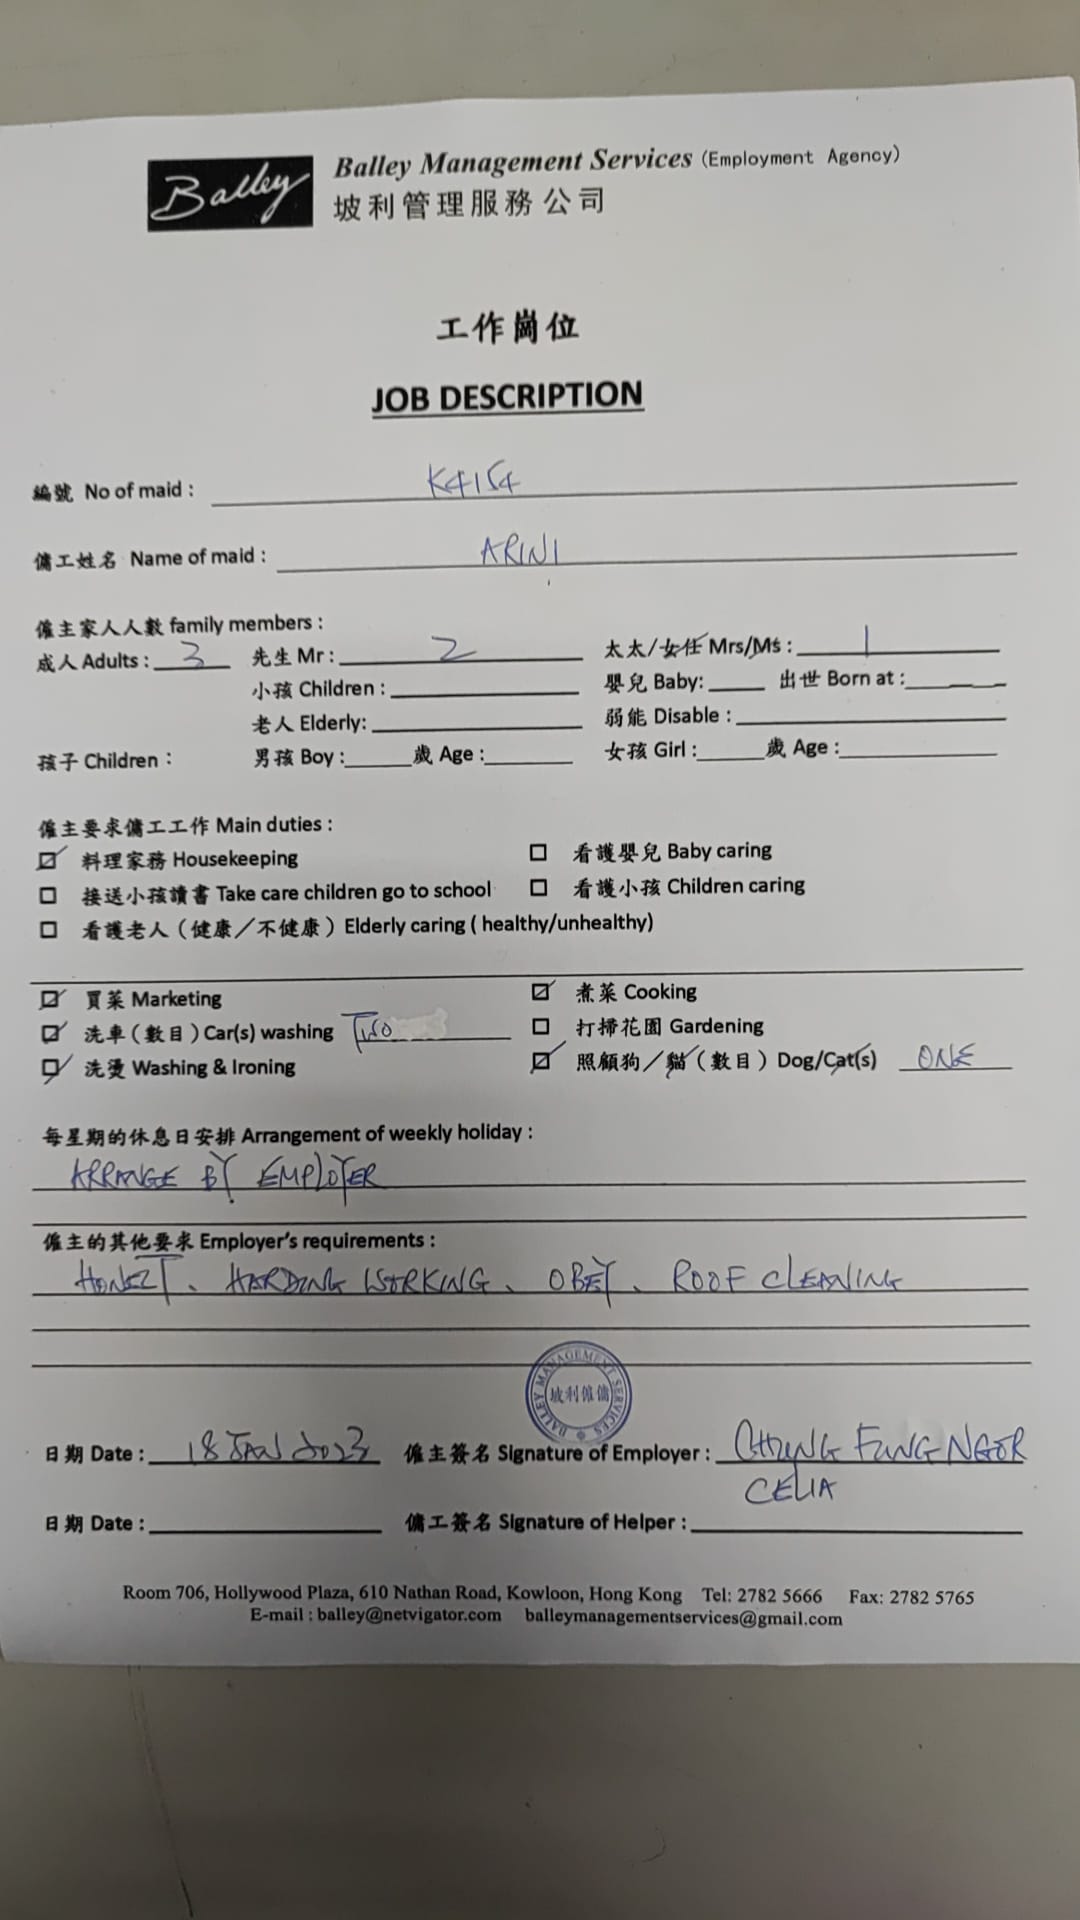 Balley
Balley Management Services (Employment Agency)
坡利管理服務公司
工作崗位
JOB DESCRIPTION
編號 No of maid : K4154
傭工姓名 Name of maid : ARINI
僱主家人人數 family members :
成人 Adults : 3 先生 Mr : 2 太太/女任 Mrs/Ms : 1
小孩 Children : 嬰兒 Baby: 出世 Born at :
老人 Elderly: 弱能 Disable :
孩子 Children : 男孩 Boy : 歲 Age : 女孩 Girl : 歲 Age :
僱主要求傭工工作 Main duties :
☑ 料理家務 Housekeeping ☐ 看護嬰兒 Baby caring
☐ 接送小孩讀書 Take care children go to school ☐ 看護小孩 Children caring
☐ 看護老人（健康／不健康）Elderly caring ( healthy/unhealthy)
☑ 買菜 Marketing ☑ 煮菜 Cooking
☑ 洗車（數目）Car(s) washing TWO ☐ 打掃花園 Gardening
☑ 洗燙 Washing & Ironing ☑ 照顧狗／貓（數目）Dog/Cat(s) ONE
每星期的休息日安排 Arrangement of weekly holiday :
ARRANGE BY EMPLOYER
僱主的其他要求 Employer's requirements :
HONEST、HARDING WORKING、OBEY、ROOF CLEANING
BALLEY MANAGEMENT SERVICES
坡利僱傭
日期 Date : 18 JAN 2023 僱主簽名 Signature of Employer : CHUNG FUNG NGOR
CELIA
日期 Date : 傭工簽名 Signature of Helper :
Room 706, Hollywood Plaza, 610 Nathan Road, Kowloon, Hong Kong Tel: 2782 5666 Fax: 2782 5765
E-mail : balley@netvigator.com balleymanagementservices@gmail.com